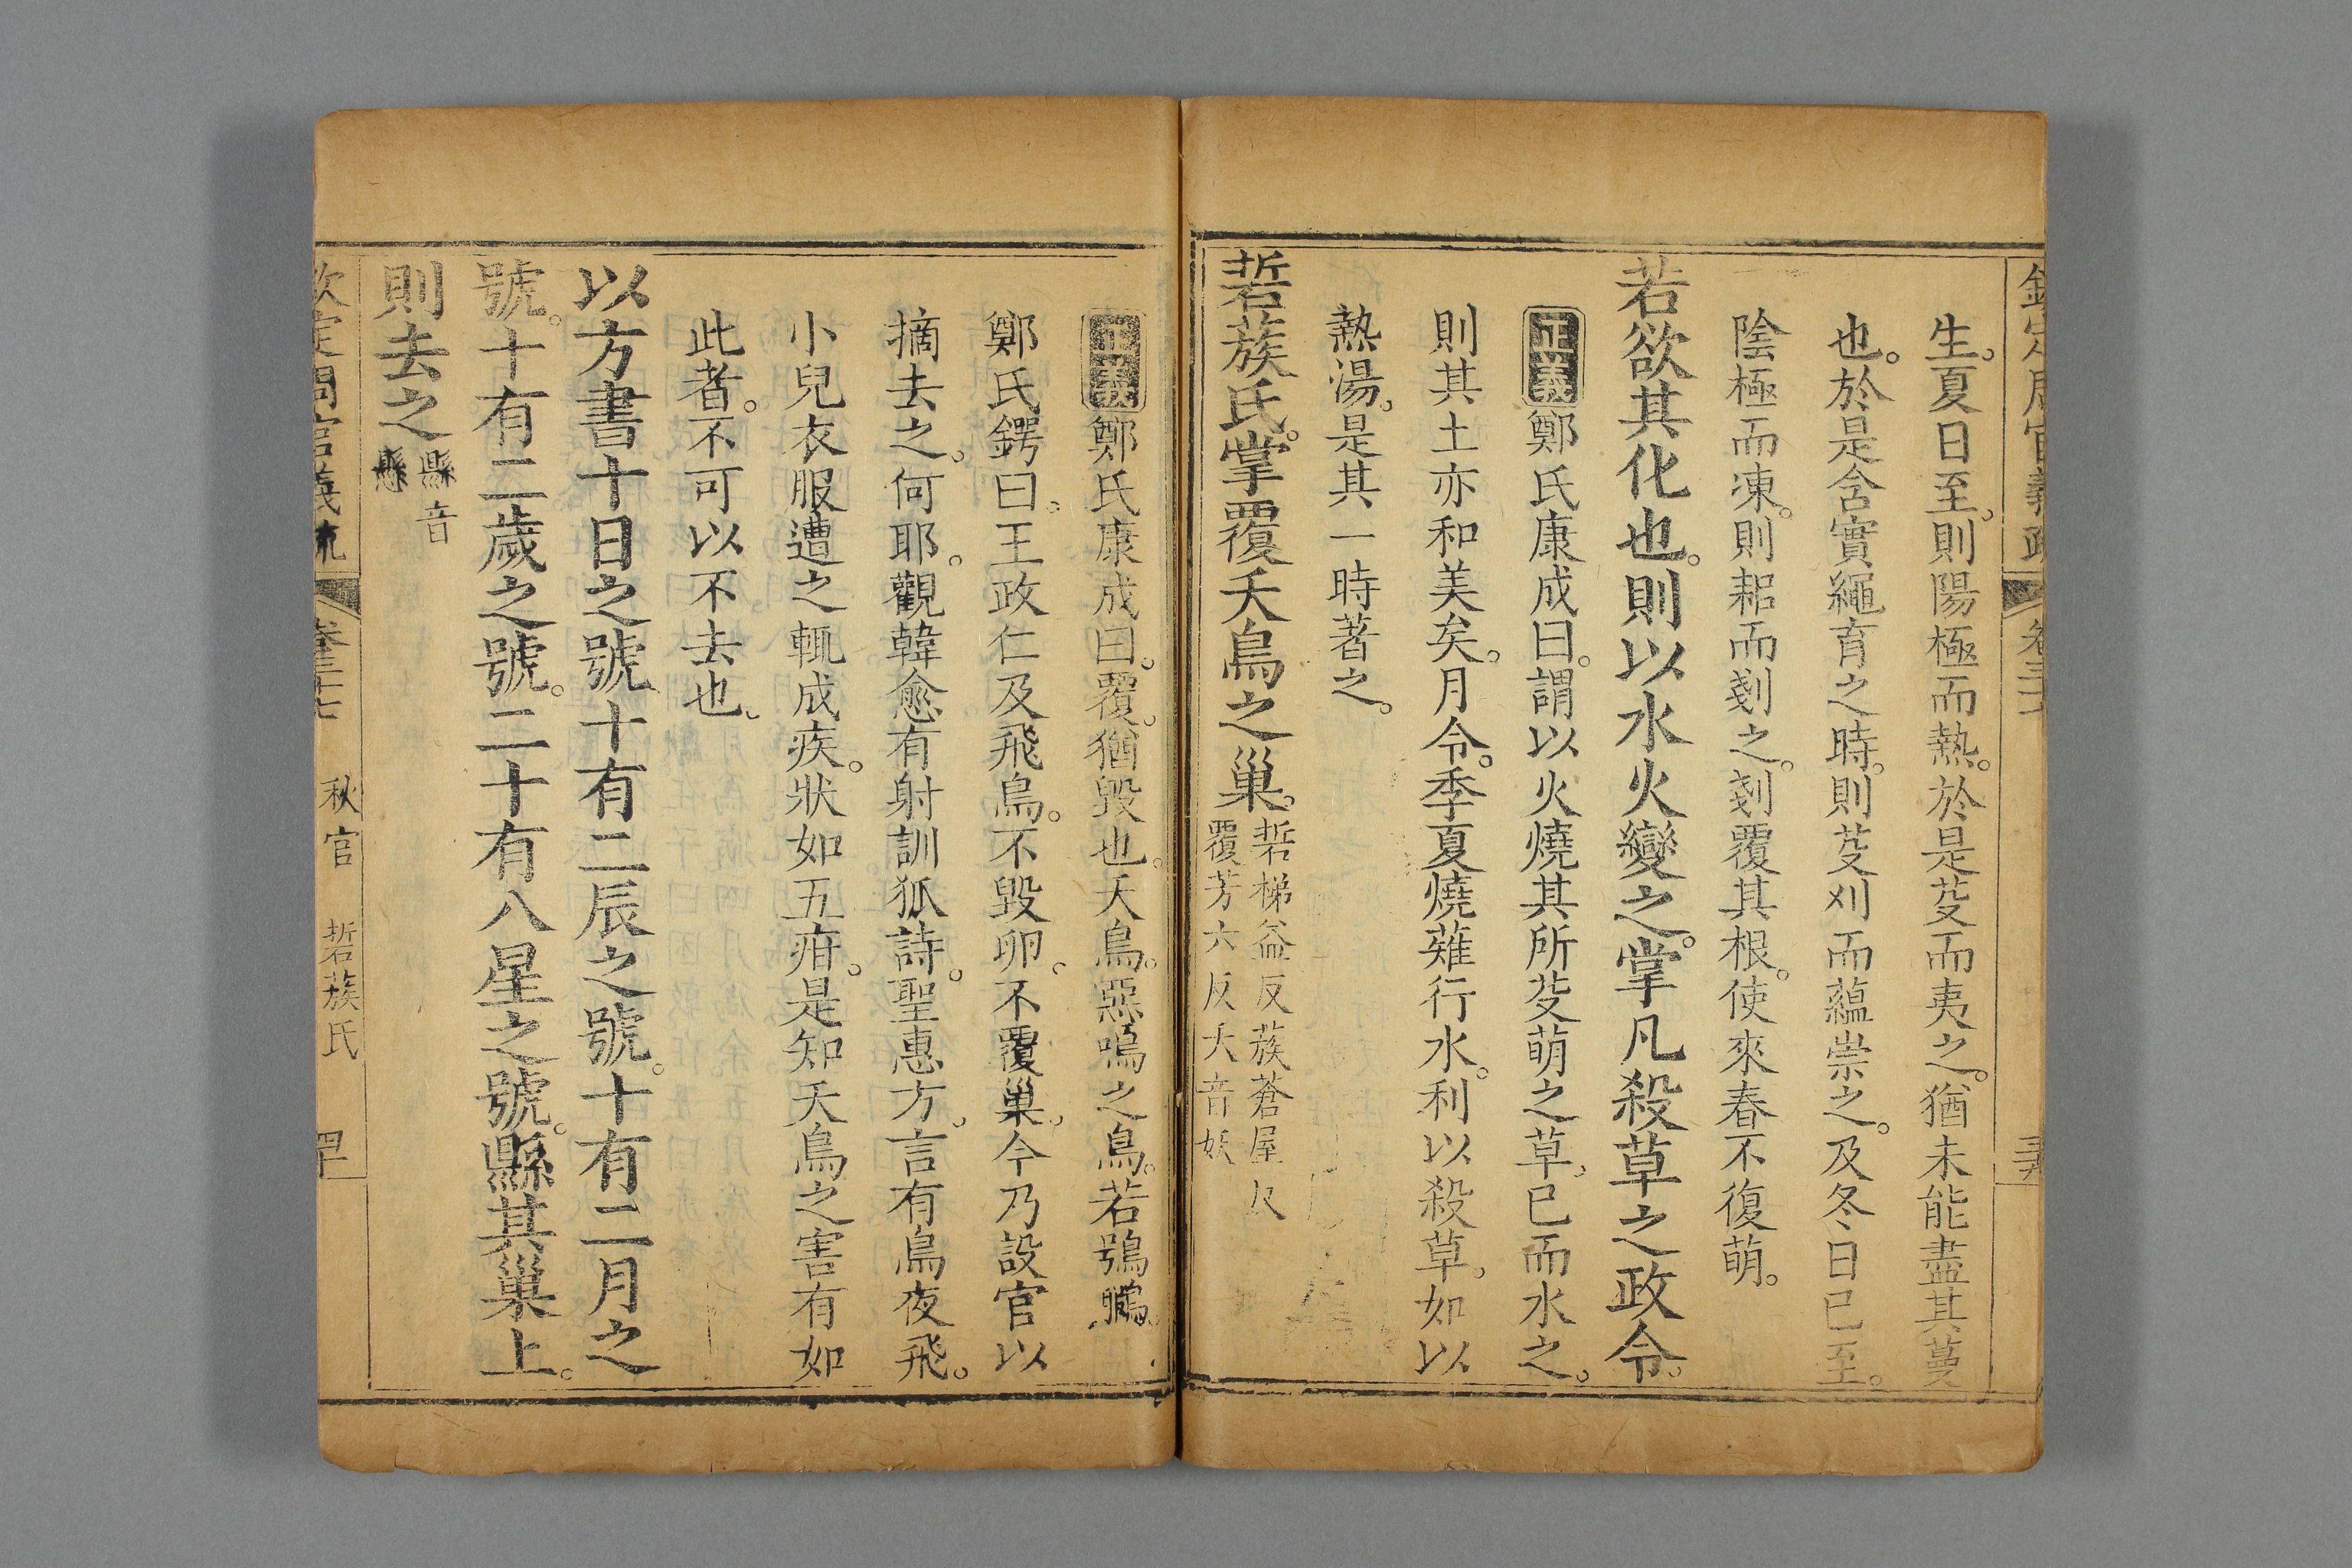 欽定周官義疏 卷三十七
生。夏日至。則陽極而熱。於是芟而夷之。猶未能盡其蔓
也。於是含實繩育之時。則芟刈而蘊崇之。及冬日已至。
陰極而凍。則耜而剗之。剗覆其根。使來春不復萌。
若欲其化也。則以水火變之。掌凡殺草之政令。
正義鄭氏康成曰。謂以火燒其所芟萌之草。已而水之。
則其土亦和美矣。月令。季夏燒薙行水。利以殺草。如以
熱湯。是其一時著之。
硩蔟氏。掌覆夭鳥之巢。硩梯益反蔟蒼屋反
覆芳六反夭音妖
正義鄭氏康成曰。覆。猶毀也。夭鳥。惡鳴之鳥。若鴞鵩。
鄭氏鍔曰。王政仁及飛鳥。不毀卵。不覆巢。今乃設官以
摘去之。何耶。觀韓愈有射訓狐詩。聖惠方。言有鳥夜飛。
小兒衣服遭之輒成疾。狀如五疳。是知夭鳥之害有如
此者。不可以不去也。
以方書十日之號。十有二辰之號。十有二月之
號。十有二歲之號。二十有八星之號。縣其巢上。
則去之縣音
懸
欽定周官義疏 卷三十七 秋官 硩蔟氏 罕